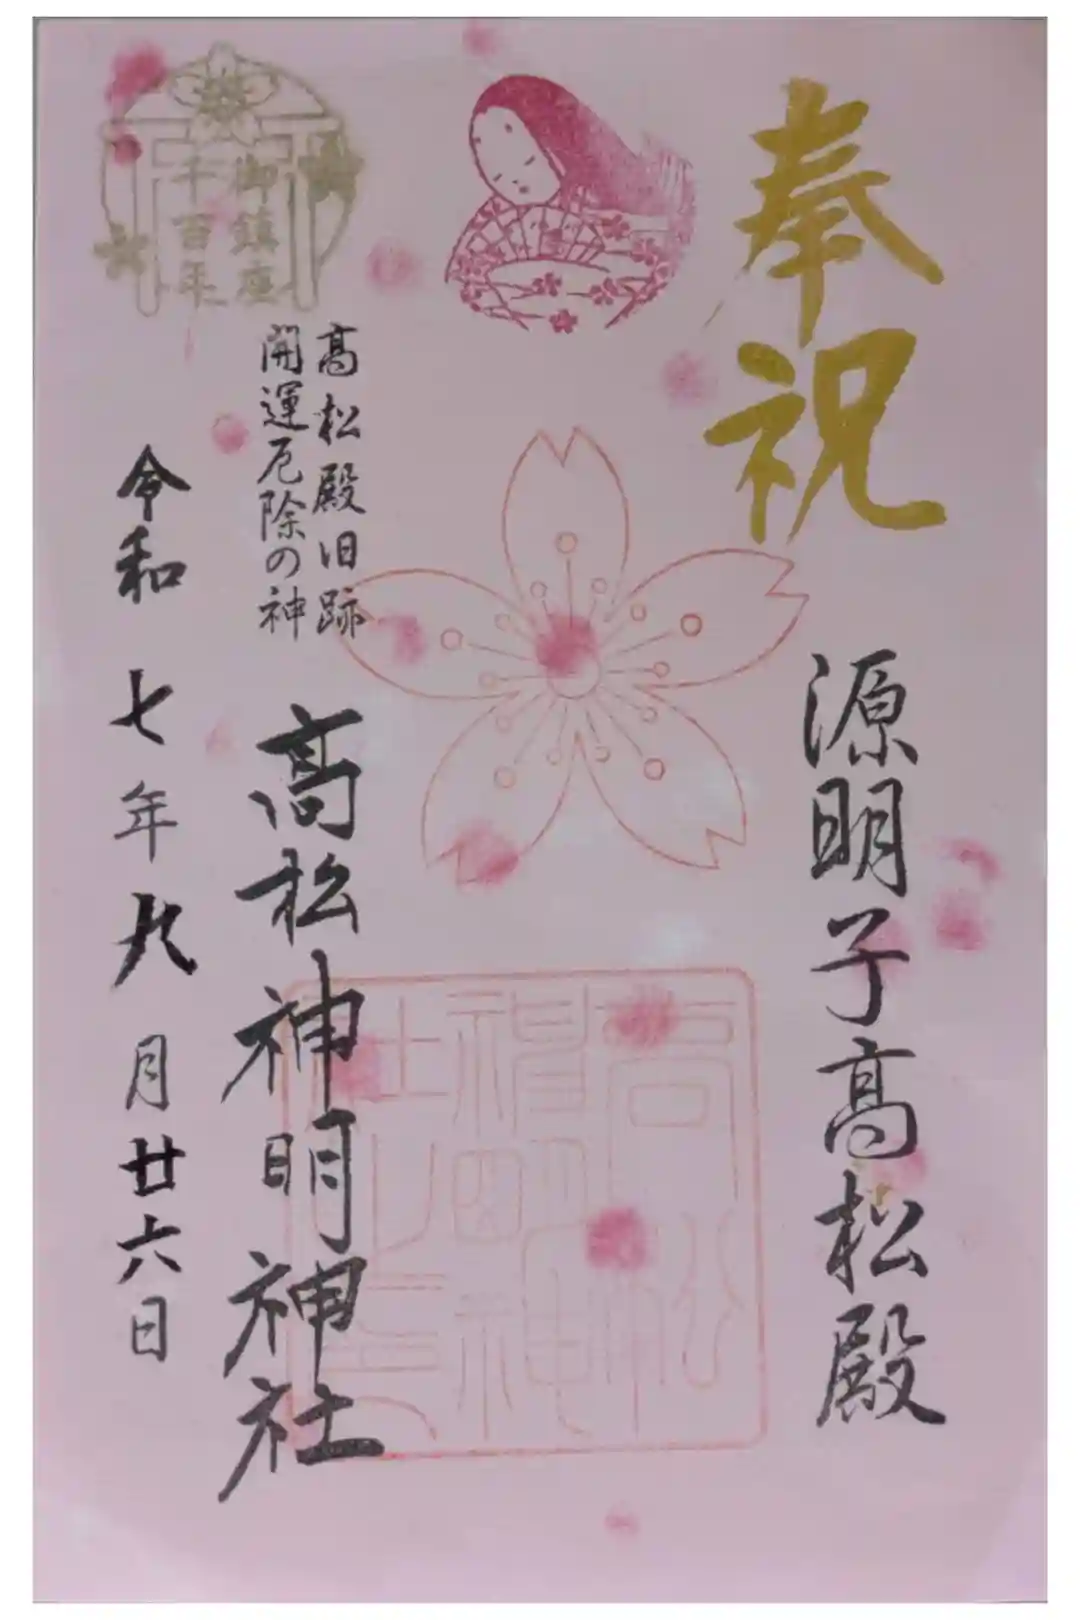 奉祝
源明子高松殿
高松殿旧跡
開運厄除の神
高松神明神社
御鎮座
千百年
令和七年九月廿六日